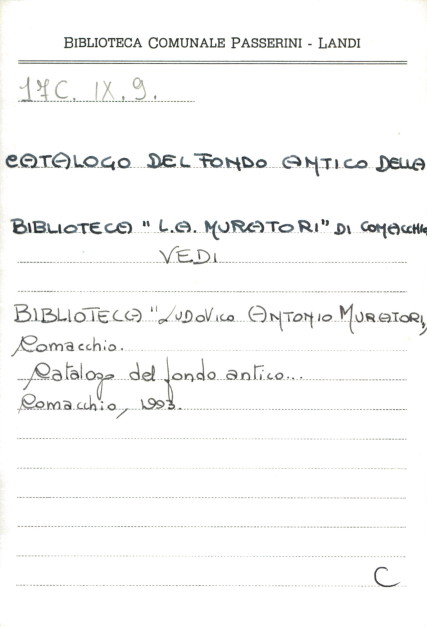 BIBLIOTECA COMUNALE PASSERINI - LANDI
17C. IX. 9.
CATALOGO DEL FONDO ANTICO DELLA
BIBLIOTECA "L.A. MURATORI" DI COMACCHIO
VEDI
BIBLIOTECA "LUDOVICO ANTONIO MURATORI,
Comacchio.
Catalogo del fondo antico...
Comacchio, 1993.
C